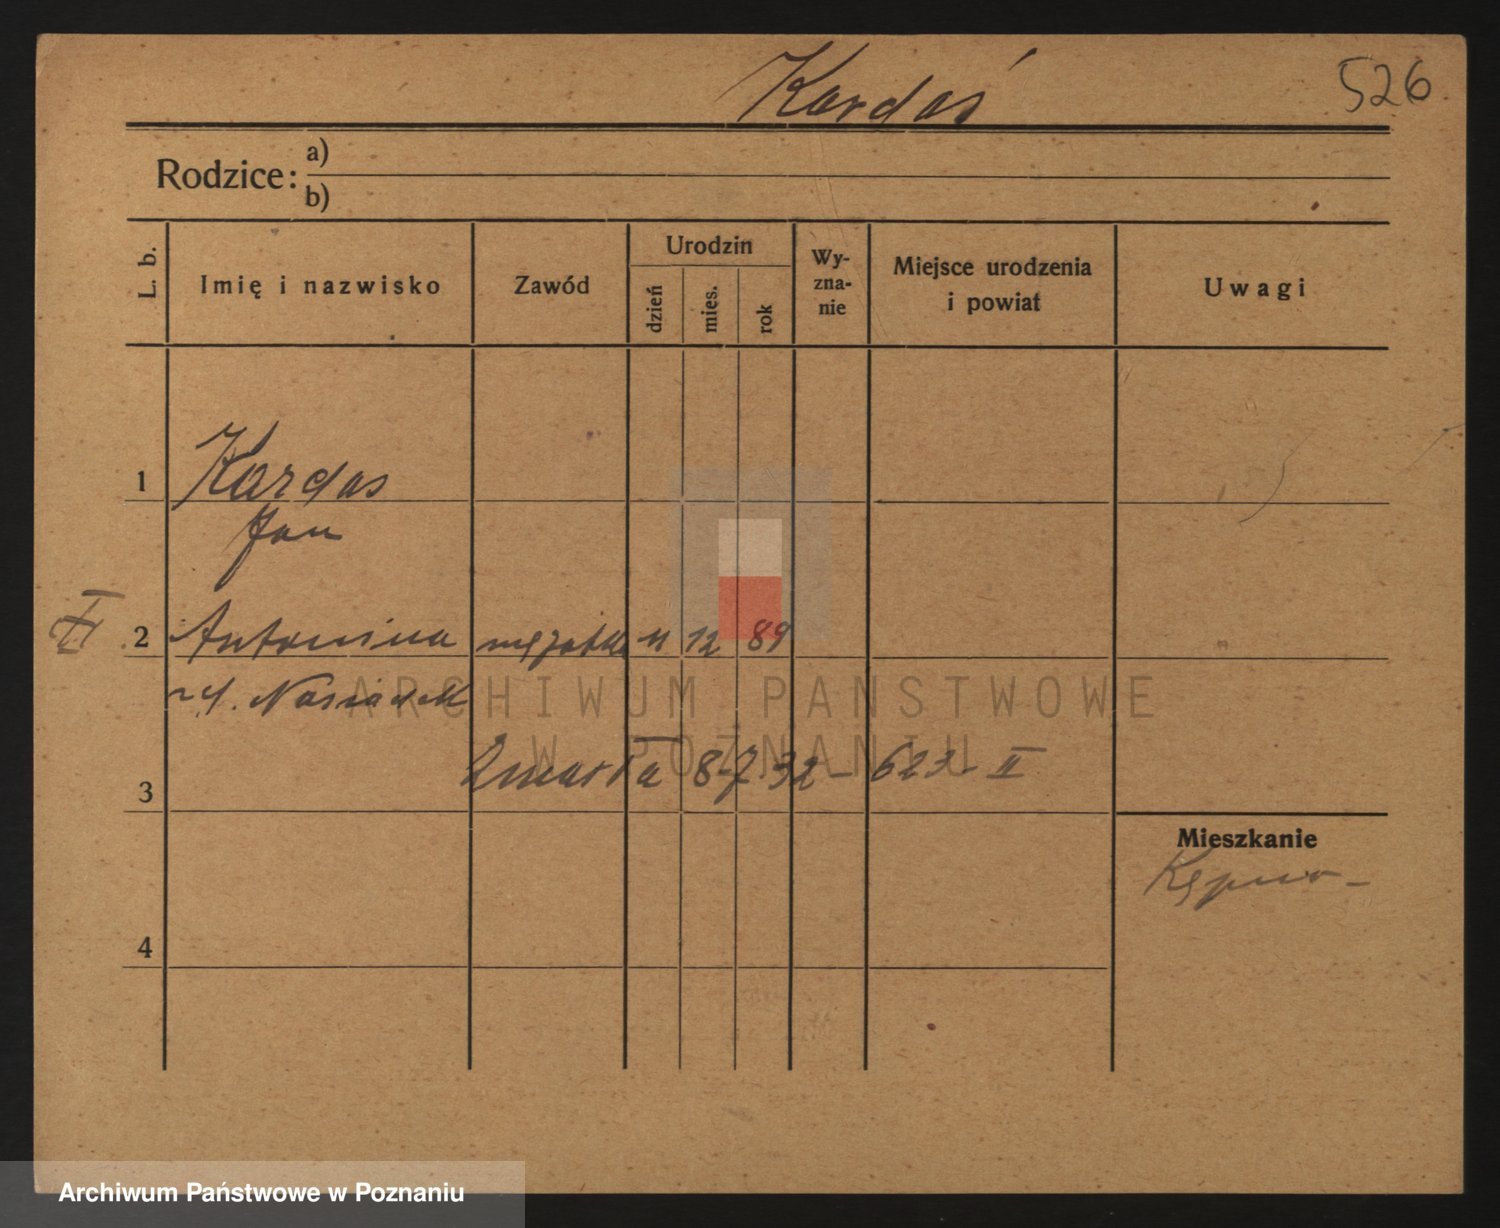 Kardaś
526
Rodzice: a)
b)
L. b.
Imię i nazwisko
Zawód
Urodzin
dzień
mies.
rok
Wy-
zna-
nie
Miejsce urodzenia
i powiat
Uwagi
1 Kardas
Jan
II 2 Antonina mężatka 11 12 89
Nosiadek
Zmarła 8-7 32 - 623 - II
3
Mieszkanie
Kępno -
4
ARCHIWUM PAŃSTWOWE
W POZNANIU
Archiwum Państwowe w Poznaniu